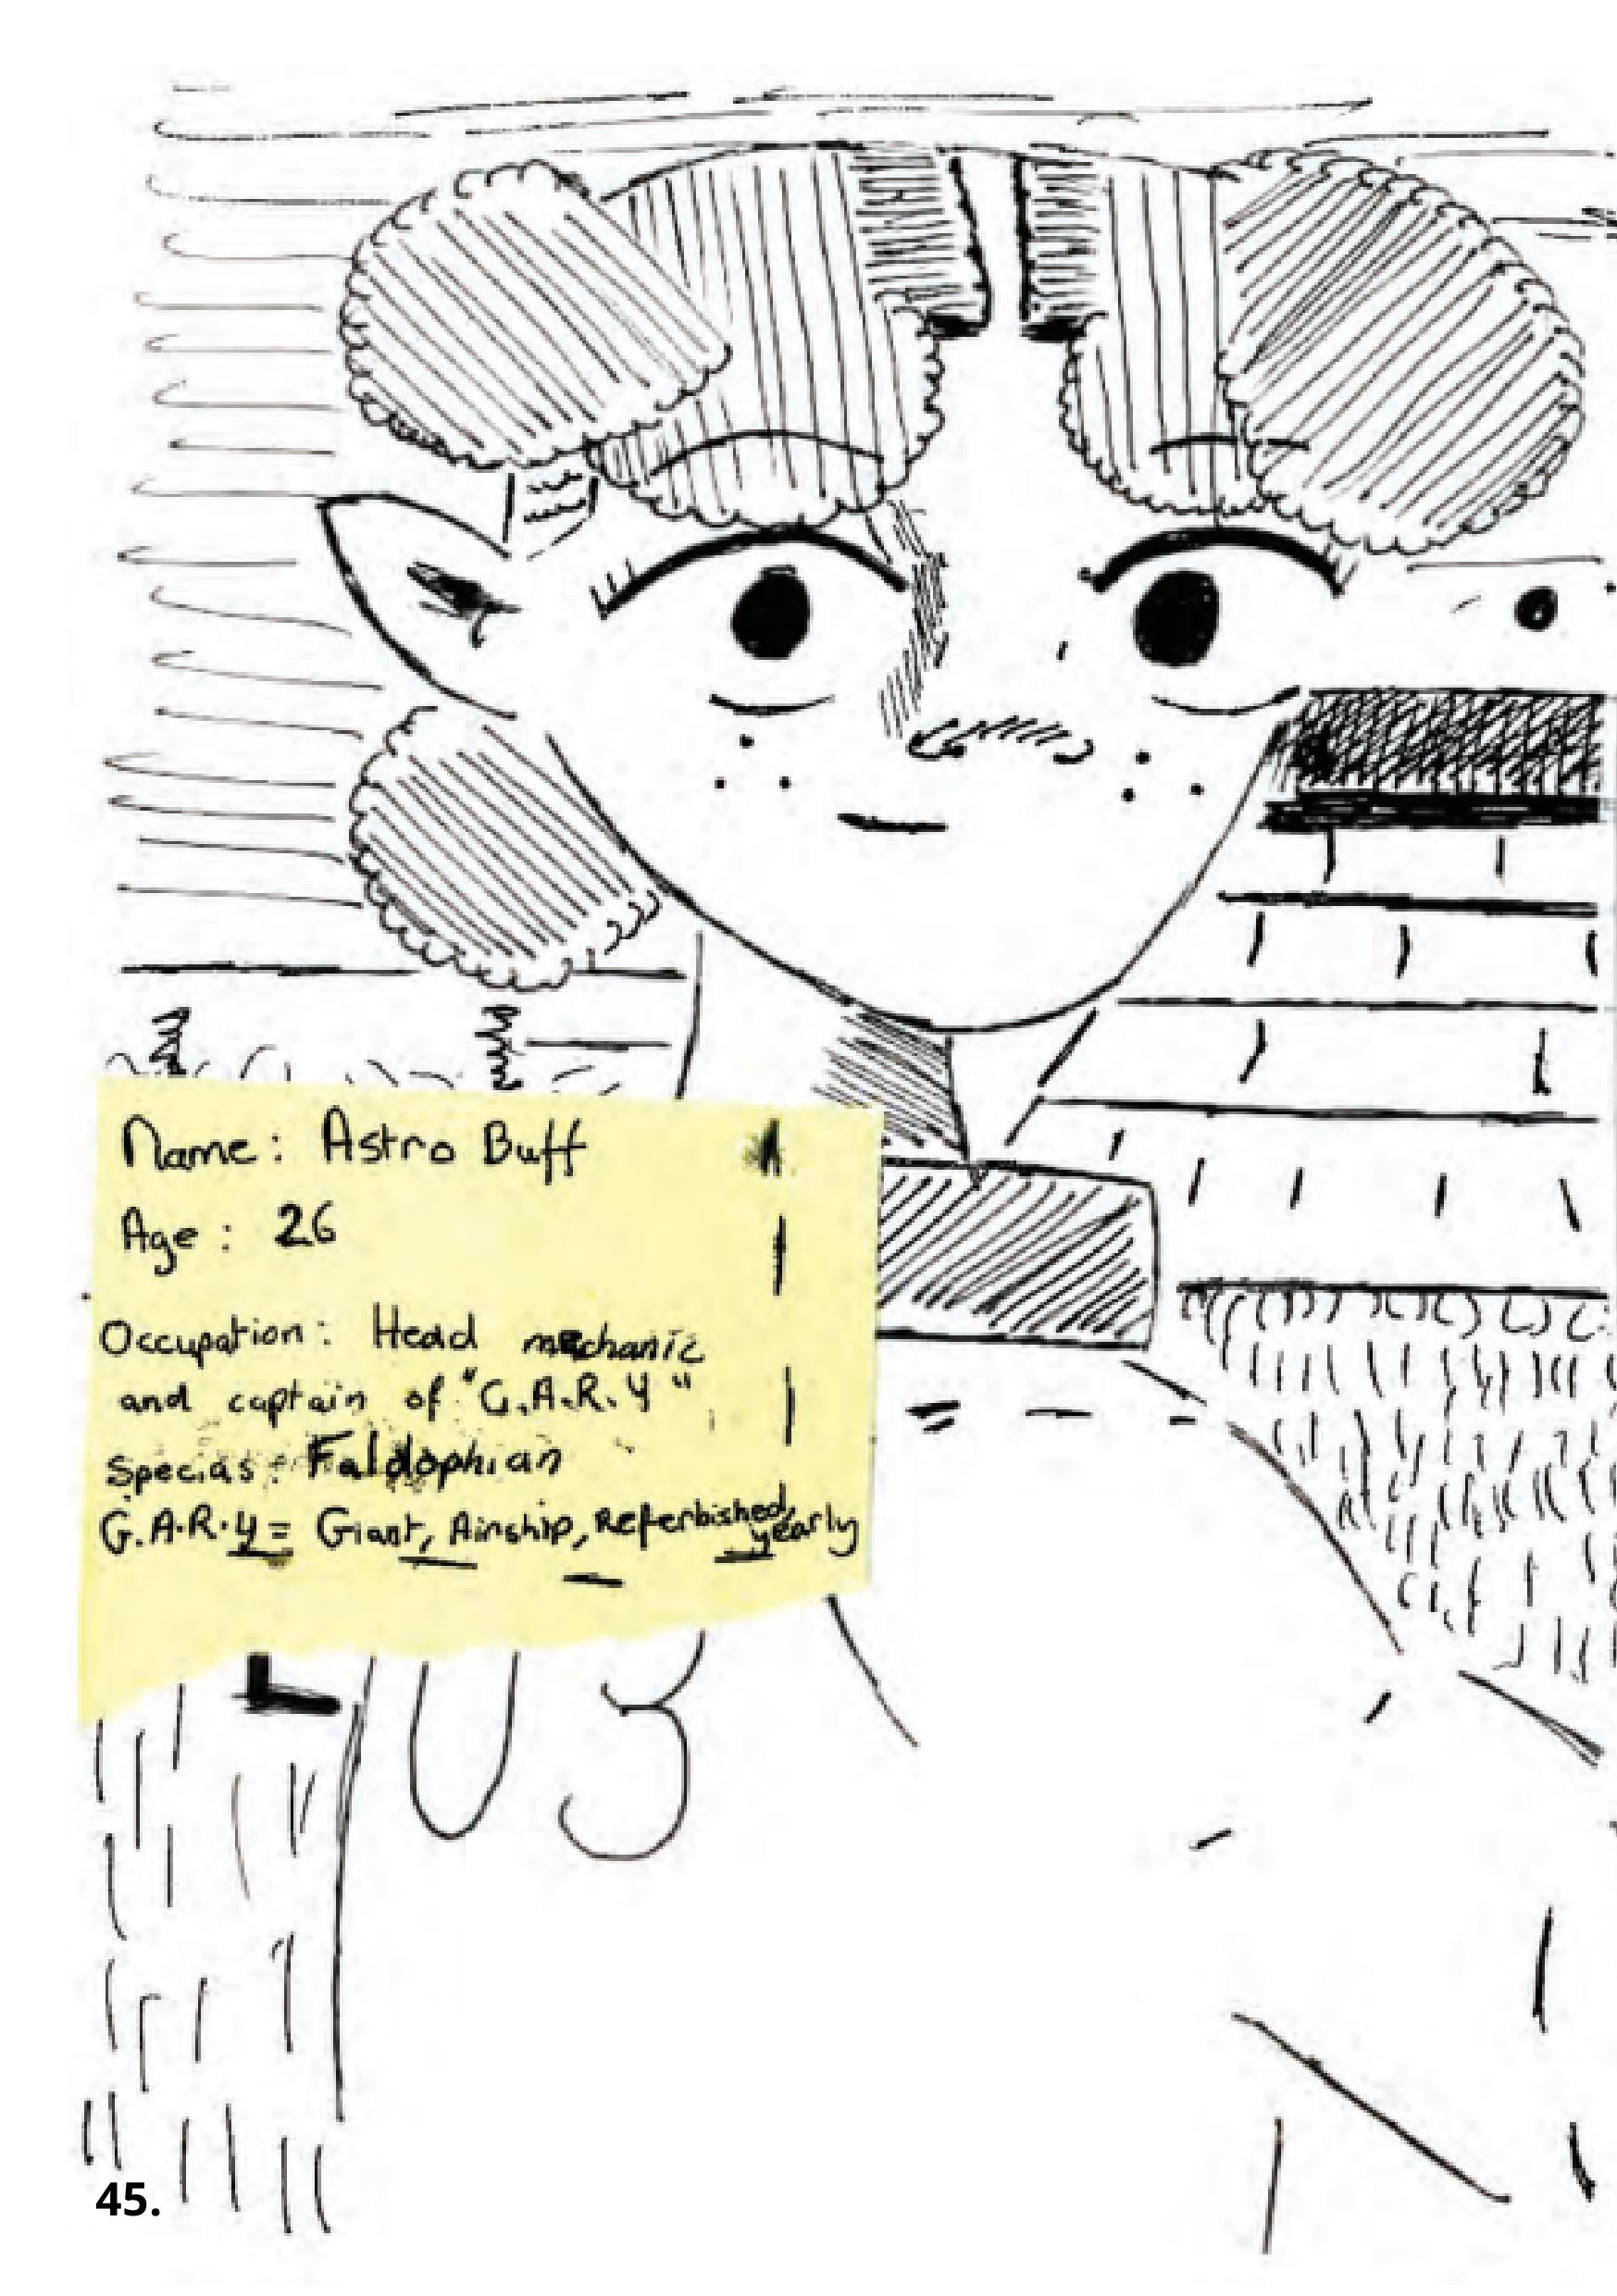 Name: Astro Buff
Age: 26
Occupation: Head mechanic
and captain of "G.A.R.Y"
Specias: Faldophian
G.A.R.Y = Giant, Airship, Referbished, yearly
L 03
45.